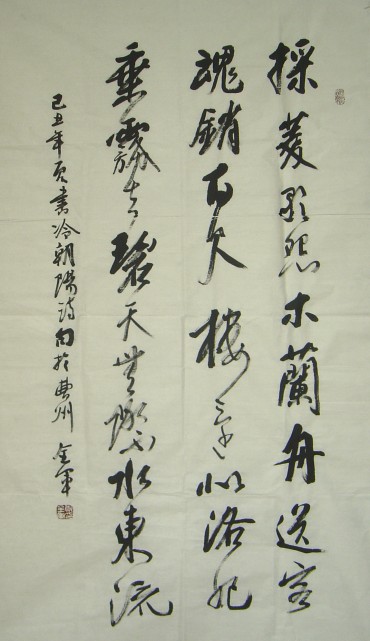 採菱歌怨木蘭舟送客
魂銷百尺樓還似洛妃
乘霧去碧天無際水東流
己丑年夏書冷朝陽詩句於曹州 金軍